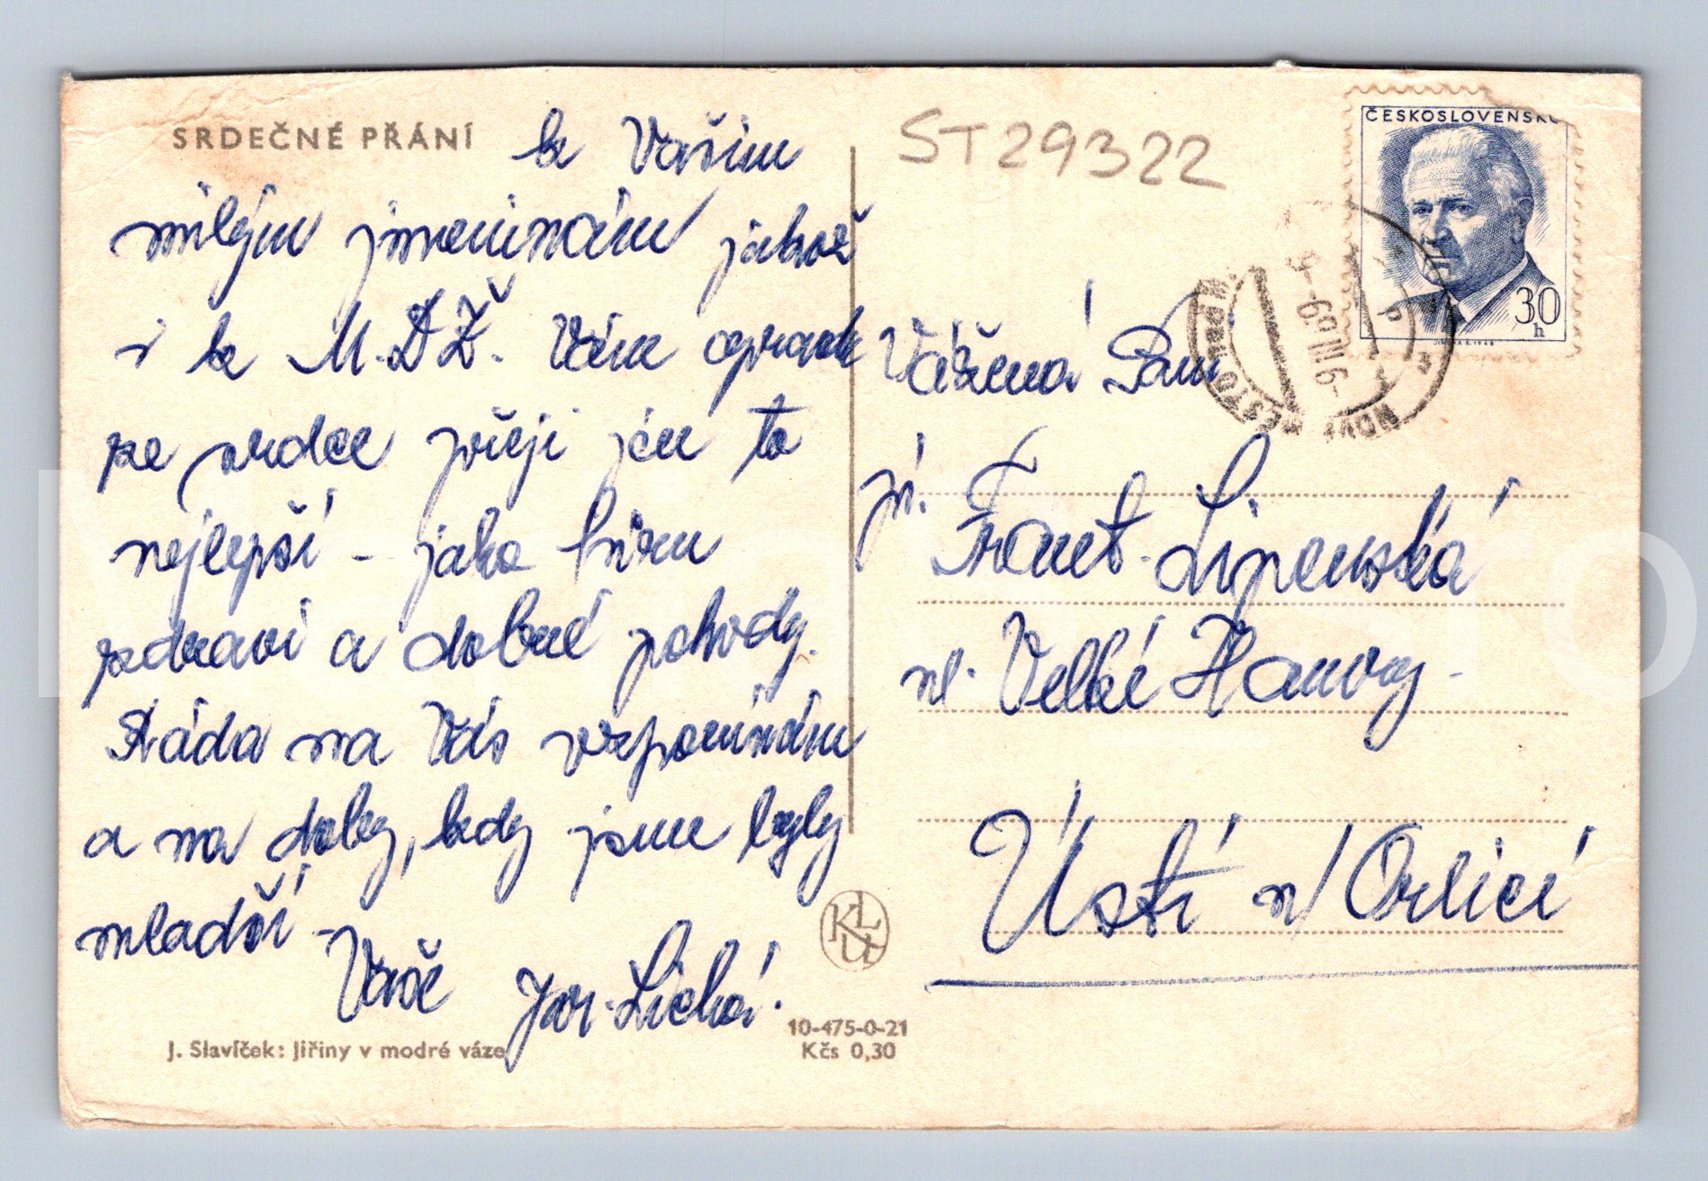 SRDEČNÉ PŘÁNÍ
k Vašim
milým jmeninám jakož
i k M.D.Ž. Vám opravdu
ze srdce přeji jen to
nejlepší – jako hivou
zdraví a dobré pohody.
Ráda na Vás vzpomínám
a na doby, kdy jsme byly
mladší –
Vaše Jar. Lichá.
J. Slavíček: Jiřiny v modré váze
10-475-0-21
Kčs 0,30
KLU
ST29322
ČESKOSLOVENSKO
30
h
-9.III.69-
NOVÉ MĚSTO
Vážená Paní
pí. Frant. Lipenská
ul. Velké Hamry -
Ústí n/Orlicí